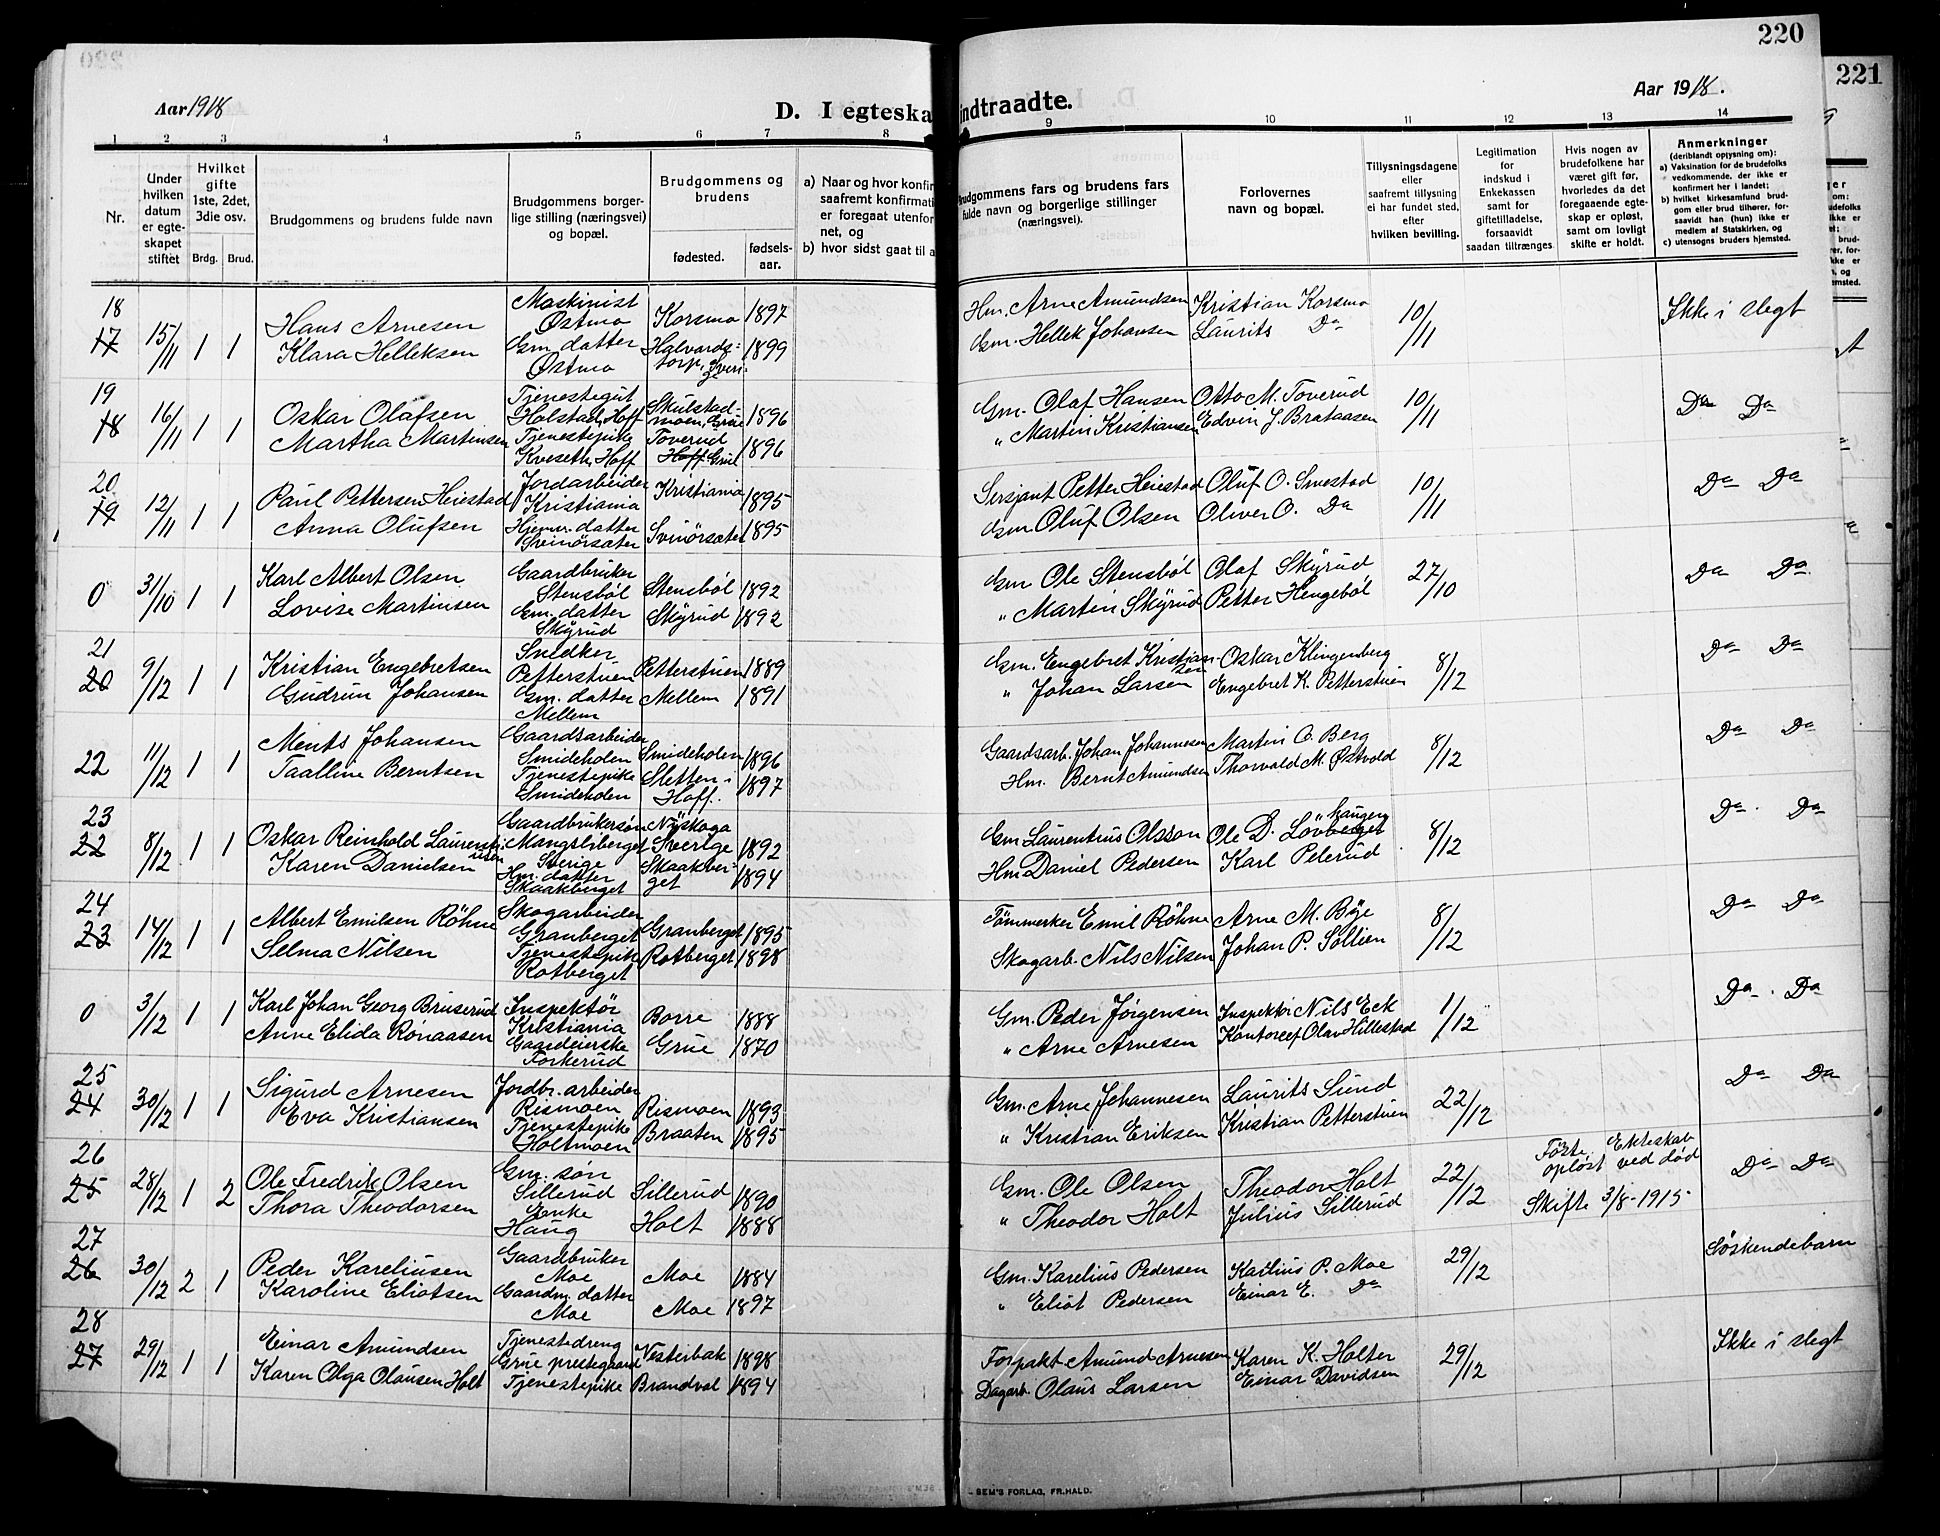 220
221
Aar 1918
D. I egteska
indtraadte.
Aar 1918.
1 2 3 4 5 6 7 8 9 10 11 12 13 14
Nr.
Under hvilken datum er egteskapet stiftet
Hvilket gifte 1ste, 2det, 3die osv.
Brdg. Brud.
Brudgommens og brudens fulde navn
Brudgommens borgerlige stilling (næringsvei) og bopæl.
Brudgommens og brudens
fødested.
fødselsaar.
a) Naar og hvor konfir
saafremt konfirmati
er foregaat utenfor
net, og
b) hvor sidst gaat til a
Brudgommens fars og brudens fars fulde navn og borgerlige stillinger (næringsvei).
Forlovernes navn og bopæl.
Tillysningsdagene eller saafremt tillysning ei har fundet sted, efter hvilken bevilling.
Legitimation for indskud i Enkekassen samt for giftetilladelse, forsaavidt saadan tiltrænges
Hvis nogen av brudefolkene har været gift før, hvorledes da det foregaaende egteskap er opløst, samt om lovligt skifte er holdt.
Anmerkninger
(deriblandt opjysning om):
a) Vaksination for de brudefolks vedkommende, der ikke er konfirmert her i landet;
b) hvilket kirkesamfund brudgom eller brud tilhører, forsaavidt han (hun) ikke er medlem av Statskirken, og
c) utensogns bruders hjemsted.
18
17 15/11 1 1 Hans Arnesen Maskinist Østmo Korsmo 1897 Hm. Arne Amundsen Kristian Korsmo 10/11 Ikke i slegt
Klara Helleksen Gm. datter Østmo Halvards-torp, Sverige 1899 Gm. Hellek Johansen Laurits Do
19
18 16/11 1 1 Oskar Olafsen Tjenestegut Halstad, Hoff Skulstadmoen, Grue 1896 Gm. Olaf Hansen Otto M. Toverud 10/11 Do Do
Martha Martinsen Tjenestepike Kveseth, Hoff Toverud Hoff Grue 1896 " Martin Kristiansen Edvin J. Brataasen
20
19 12/11 1 1 Paul Pettersen Heiestad Jordarbeider Kristiania Kristiania 1895 Sersjant Petter Heiestad Oluf O. Smestad 10/11 Do Do
Anna Olufsen Hjemv. datter Svinørsæter Svinørsæter 1895 Gm. Oluf Olsen Oliver O. Do
0 31/10 1 1 Karl Albert Olsen Gaardbruker Stensbøl Stensbøl 1892 Gm Ole Stensbøl Olaf Skyrud 27/10 Do Do
Lovise Martinsen Gm. datter Skyrud Skyrud 1892 " Martin Skyrud Petter Hengebøl
21
20 9/12 1 1 Kristian Engebretsen Snedker Petterstuen Petterstuen 1889 Gm. Engebret Kristiansen Oskar Klingenberg 8/12 Do Do
Gudrun Johansen Gm. datter Mellem Mellem 1891 " Johan Larsen Engebret K. Petterstuen
22 11/12 1 1 Ments Johansen Gaardsarbeider Smideholen Smideholen 1896 Gaardsarb. Johan Johannesen Martin O. Berg 8/12 Do Do
Taalline Berntsen Tjenestepike Smideholen Sletten i Hoff. 1897 Hm. Bernt Amundsen Thorvald M. Østvold
23
22 8/12 1 1 Oskar Reinhold Laurentiusen Gaardbrukersøn Mangsliberget Sverige Nyskoga Sverige 1892 Gm Laurentius Olsson Ole D. Løvberget 8/12 Do Do
Karen Danielsen Hm. datter Skaakberget Skaakberget 1894 Hm Daniel Pedersen Karl Pelerud
24
23 14/12 1 1 Albert Emilsen Röhne Skogarbeider Granberget Granberget 1895 Tømmerker Emil Röhne Arne M. Bye 8/12 Do Do
Selma Nilsen Tjenestepike Rotberget Rotberget 1898 Skogarb. Nils Nilsen Johan P. Sollien
0 3/12 1 1 Karl Johan Georg Bruserud Inspektør Kristiania Borre 1888 Gm. Peder Jørgensen Inspektør Nils Eck 1/12 Do Do
Anne Elida Rønaasen Gaardeierske Torkerud Grue 1870 " Arne Arnesen Kontorcef Olav Hillestad
25
24 30/12 1 1 Sigurd Arnesen Jordbr. arbeider Rismoen Rismoen 1893 Gm. Arne Johannesen Laurits Sund 22/12 Do Do
Eva Kristiansen Tjenestepike Holtmoen Braaten 1895 " Kristian Eriksen Kristian Petterstuen
26
25 28/12 1 2 Ole Fredrik Olsen Gm. søn Sillerud Sillerud 1890 Gm. Ole Olsen Theodor Holt 22/12 Første Ekteskab opløst ved død Do Do
Thora Theodorsen Enke Haug Holt 1888 " Theodor Holt Julius Sillerud Skifte 3/8-1915
27
26 30/12 2 1 Peder Kareliusen Gaardbruker Moe Moe 1884 Gm. Karelius Pedersen Karlius P. Moe 29/12 Søskendebarn
Karoline Eliotsen Gaardm. datter Moe Moe 1897 " Eliot Pedersen Einar E. Do
28
27 29/12 1 1 Einar Amundsen Tjenestedreng Grue prestegaard Vesterbak 1898 Forpakt Amund Arnesen Karen K. Holter 29/12 Ikke i slegt
Karen Olga Olausen Holt Tjenestepike Brandval 1894 Dagarb. Olaus Larsen Einar Davidsen
SEM'S FORLAG, FR.HALD.